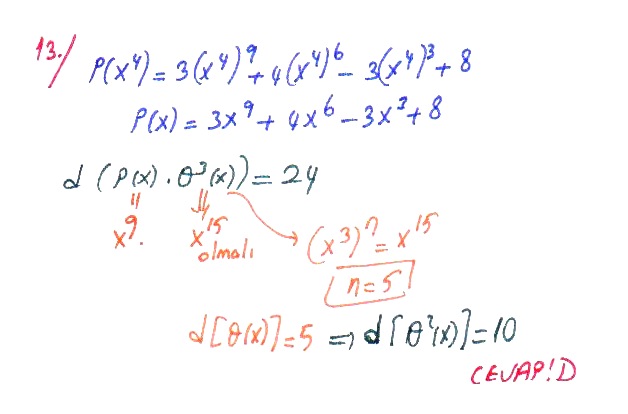 13./ P(x⁴) = 3(x⁴)⁹ + 4(x⁴)⁶ - 3(x⁴)³ + 8
P(x) = 3x⁹ + 4x⁶ - 3x³ + 8
d (P(x) . θ³(x)) = 24
x⁹. x¹⁵ olmalı
(x³)ⁿ = x¹⁵
n = 5
d[θ(x)] = 5 ⇒ d[θ²(x)] = 10
CEVAP! D